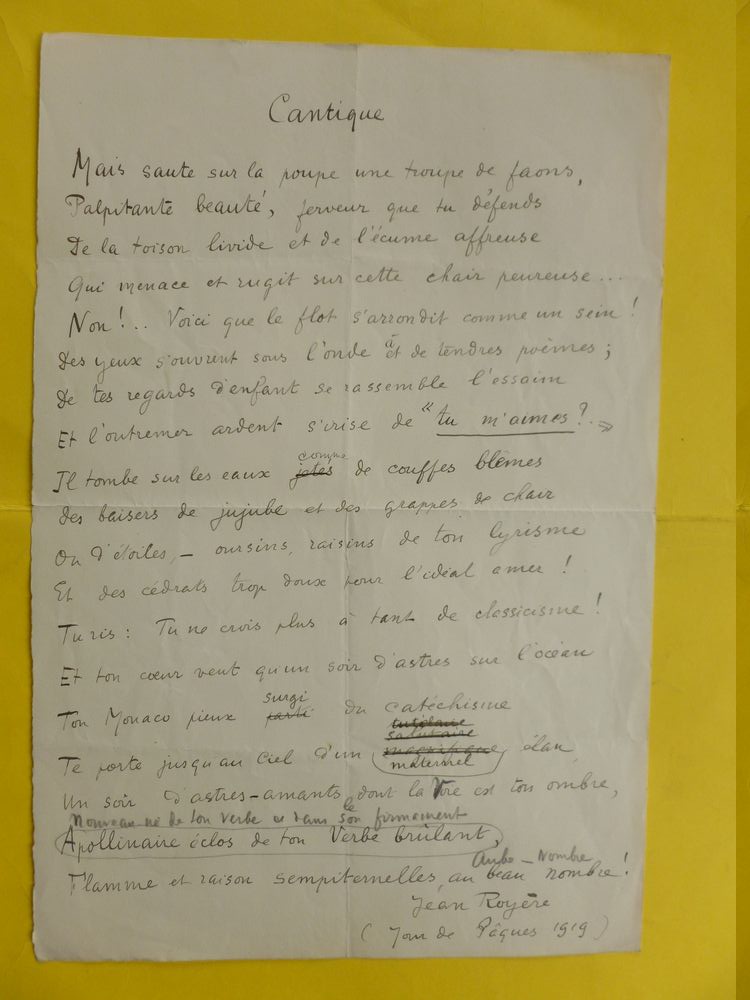 Cantique
Mais saute sur la poupe une troupe de faons,
Palpitante beauté, ferveur que tu défends
De la toison livide et de l'écume affreuse
Qui menace et rugit sur cette chair peureuse...
Non!.. Voici que le flot s'arrondit comme un sein!
Des yeux s'ouvrent sous l'onde à et de tendres poèmes;
De tes regards d'enfant se rassemble l'essaim
Et l'outremer ardent s'irise de "tu m'aimes?.."
comme
Il tombe sur les eaux jetés de couffes blêmes
Des baisers de jujube et des grappes de chair
Ou d'étoiles, – oursins, raisins de ton lyrisme
Et des cédrats trop doux pour l'idéal amer!
Tu ris: Tu ne crois plus à tant de classicisme!
Et ton cœur veut qu'un soir d'astres sur l'océan
surgi
Ton Monaco pieux parti du catéchisme
salutaire
magnifique
Te porte jusqu'au Ciel d'un maternel élan,
Un soir d'astres-amants dont la Voie est ton ombre,
Nouveau né de ton Verbe et dans le son firmament
Apollinaire éclos de ton Verbe brûlant,
Aube-Nombre
Flamme et raison sempiternelles, au beau nombre!
Jean Royère
(Jour de Pâques 1919)